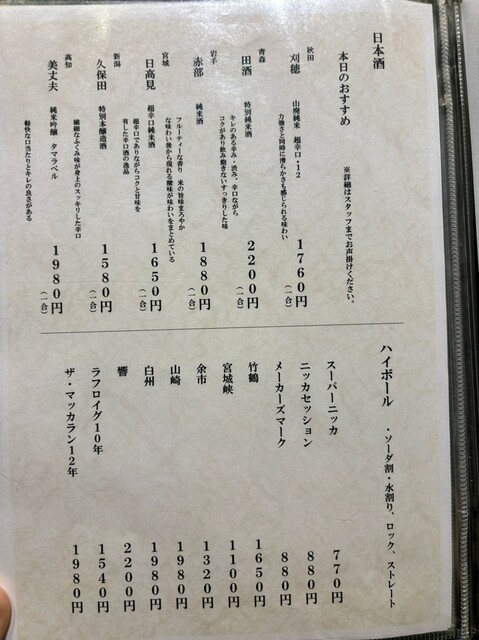 日本酒
本日のおすすめ ※詳細はスタッフまでお声掛けください。
秋田
刈穂 山廃純米 超辛口+12 1760円(一合)
力強さと同時に滑らかさも感じられる味わい
青森
田酒 特別純米酒 2200円(一合)
キレのある辛み・渋み、辛口ながら
コクがあり飲み飽きないすっきりした味
岩手
赤部 純米酒 1880円(一合)
フルーティーな香り 米の旨味まろやか
な味わい後から現れる酸味が味わいをまとめている
宮城
日高見 超辛口純米酒 1650円(一合)
超辛口でありながらコクと甘味を
有した辛口酒の逸品
新潟
久保田 特別本醸造酒 1580円(一合)
繊細なふくみ味が身上のスッキリした辛口
高知
美丈夫 純米吟醸 タマラベル 1980円(一合)
軽快な口当たりとキレの良さがある
ハイボール ・ソーダ割・水割り、ロック、ストレート
スーパーニッカ 770円
ニッカセッション 880円
メーカーズマーク 880円
竹鶴 1650円
宮城峡 1100円
余市 1320円
山崎 1980円
白州 1980円
響 2200円
ラフロイグ10年 1540円
ザ・マッカラン12年 1980円